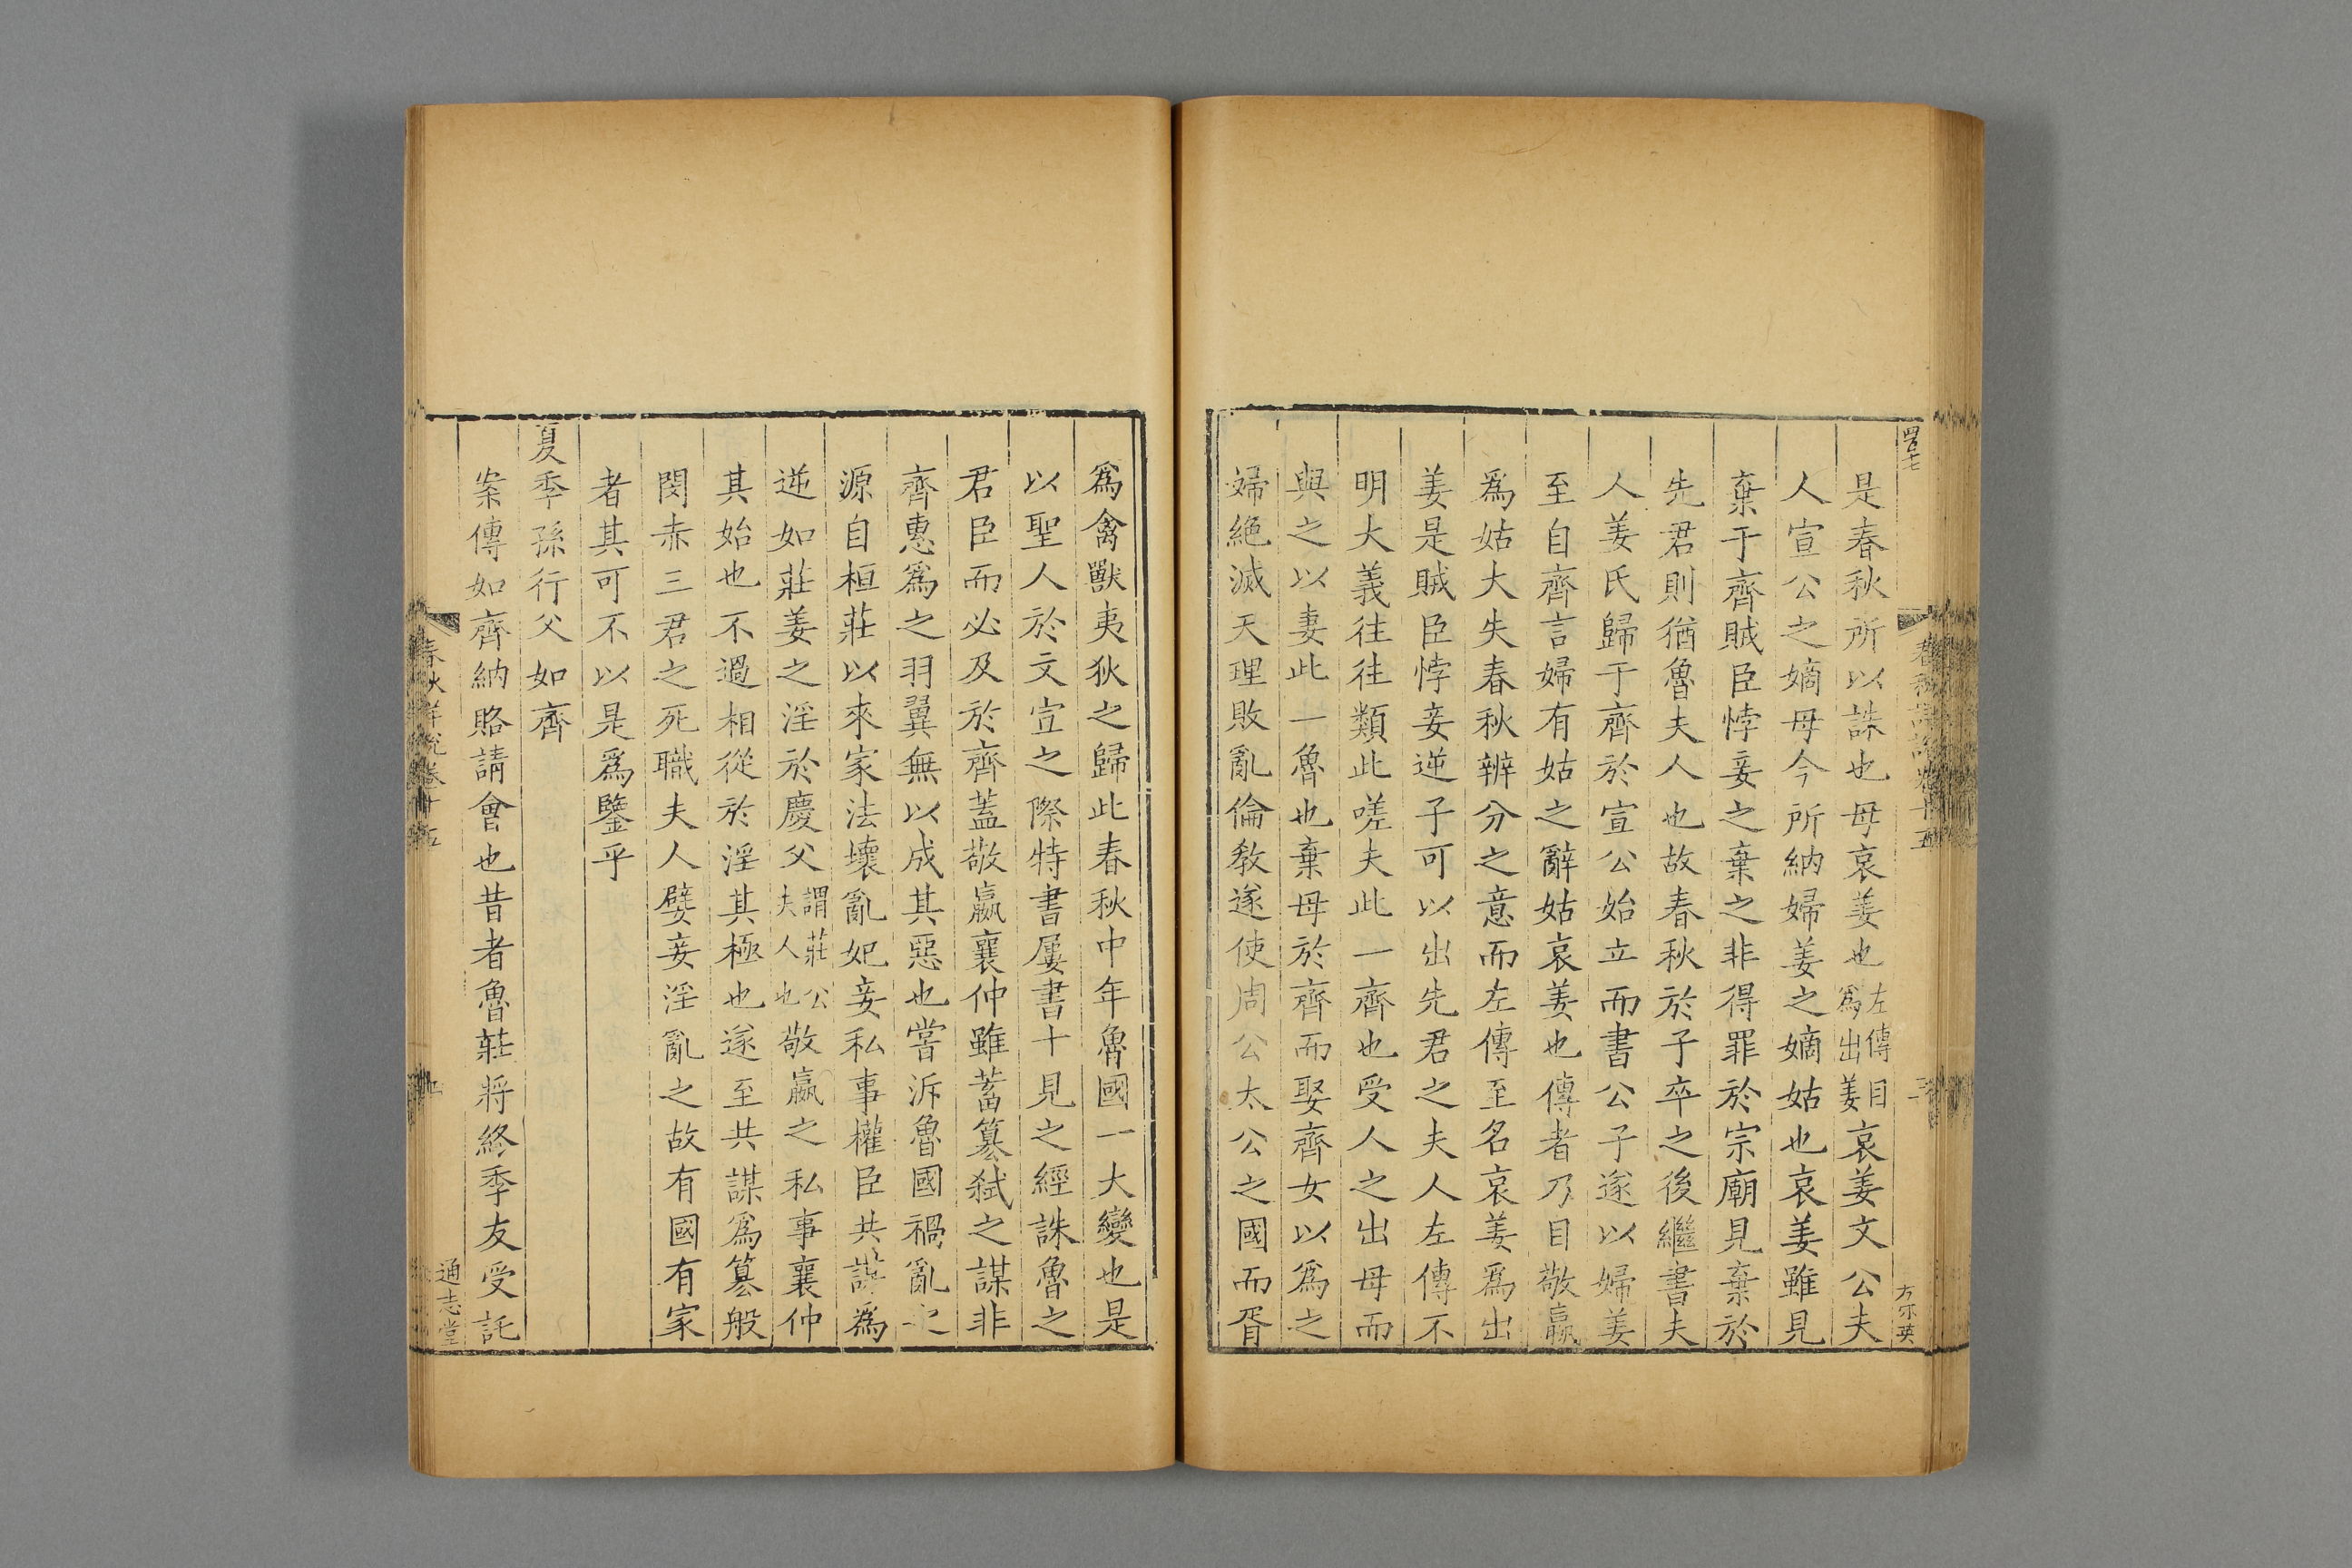 是春秋所以誅也母哀姜也左傳目哀姜爲出姜哀姜文公夫
人宣公之嫡母今所納婦姜之嫡姑也哀姜雖見
棄于齊賊臣悖妾之棄之非得罪於宗廟見棄於
先君則猶魯夫人也故春秋於子卒之後繼書夫
人姜氏歸于齊於宣公始立而書公子遂以婦姜
至自齊言婦有姑之辭姑哀姜也傳者乃目敬嬴
爲姑大失春秋辨分之意而左傳至名哀姜爲出
姜是賊臣悖妾逆子可以出先君之夫人左傳不
明大義往往類此嗟夫此一齊也受人之出母而
與之以妻此一魯也棄母於齊而娶齊女以爲之
婦絕滅天理敗亂倫教遂使周公太公之國而胥
爲禽獸夷狄之歸此春秋中年魯國一大變也是
以聖人於文宣之際特書屢書十見之經誅魯之
君臣而必及於齊蓋敬嬴襄仲雖蓄篡弒之謀非
齊惠爲之羽翼無以成其惡也嘗泝魯國禍亂之
源自桓莊以來家法壞亂妃妾私事權臣共謀爲
逆如莊姜之淫於慶父謂莊公夫人也敬嬴之私事襄仲
其始也不過相從於淫其極也遂至共謀爲篡般
閔赤三君之死職夫人嬖妾淫亂之故有國有家
者其可不以是爲鑒乎
夏季孫行父如齊
案傳如齊納賂請會也昔者魯莊將終季友受託
春秋詳說卷十五
通志堂